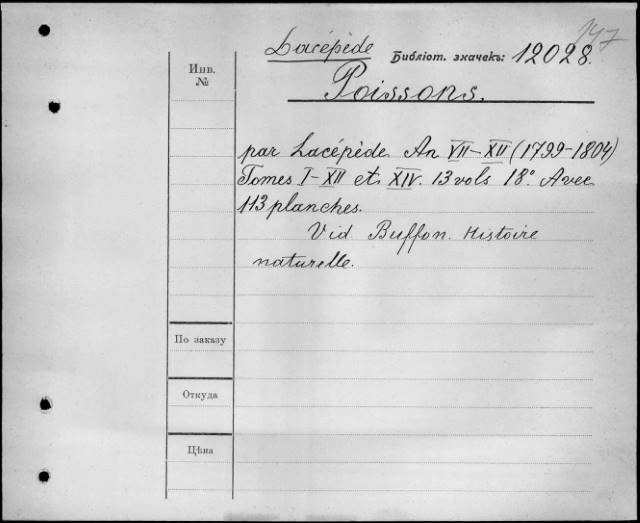 147
Lacépède Библіот. значекъ: 12028.
Инв.
№
Poissons.
par Lacépède An VII–XII (1799–1804)
Tomes I–XII et XIV. 13 vols 18° Avec
113 planches.
Vid Buffon. Histoire
naturelle.
По заказу
Откуда
Цѣна